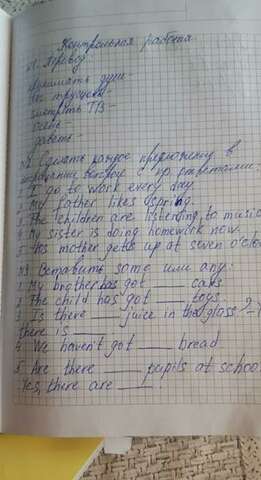 Контрольная работа
№1. Перевод
принимать душ -
смотреть ТВ -
осень -
работа -
№2. Сделать каждое предложение в
1 I go to work every day.
2 My father likes spring.
3 The children are listening to music
4 My sister is doing homework now.
5 His mother gets up at seven o'clo
№3. Вставить some или any.
1 My brother has got ___ cars
2 The child has got ___ toys.
3 Is there ___ juice in the glass? - Y
there is ___.
4 We haven't got ___ bread
5 Are there ___ pupils at school
Yes, there are ___.